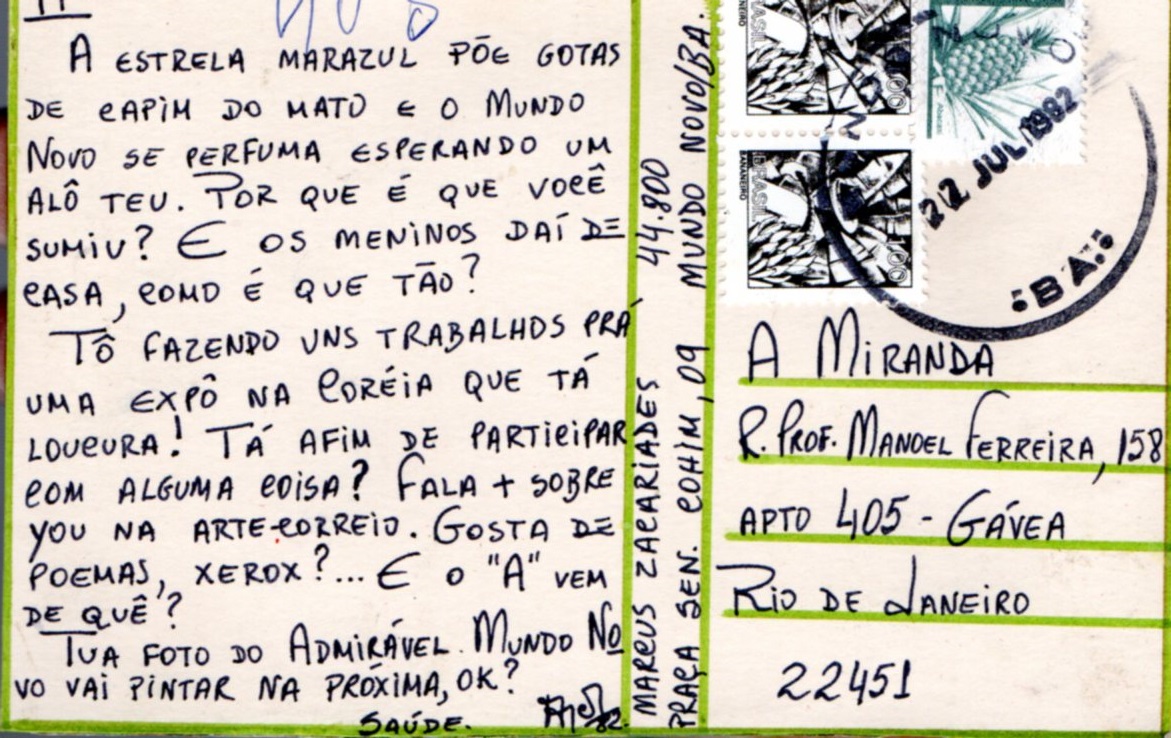 A ESTRELA MARAZUL PÕE GOTAS
DE CAPIM DO MATO E O MUNDO
NOVO SE PERFUMA ESPERANDO UM
ALÔ TEU. POR QUE É QUE VOCÊ
SUMIU? E OS MENINOS DAÍ DE
CASA, COMO É QUE TÃO?
TÔ FAZENDO UNS TRABALHOS PRÁ
UMA EXPÔ NA CORÉIA QUE TÁ
LOUCURA! TÁ AFIM DE PARTICIPAR
COM ALGUMA COISA? FALA + SOBRE
YOU NA ARTE-CORREIO. GOSTA DE
POEMAS, XEROX?... E O "A" VEM
DE QUÊ?
TUA FOTO DO ADMIRÁVEL MUNDO NO
VO VAI PINTAR NA PRÓXIMA, OK?
SAÚDE.
82.
MARCUS ZACARIADES 44.800
PRAÇA SEN. COHIM, 09 MUNDO NOVO/BA.
BRASIL
1,00
BRASIL
1,00
22 JUL 1982
BA
A MIRANDA
R. PROF. MANOEL FERREIRA, 158
APTO 405 - GÁVEA
RIO DE JANEIRO
22451